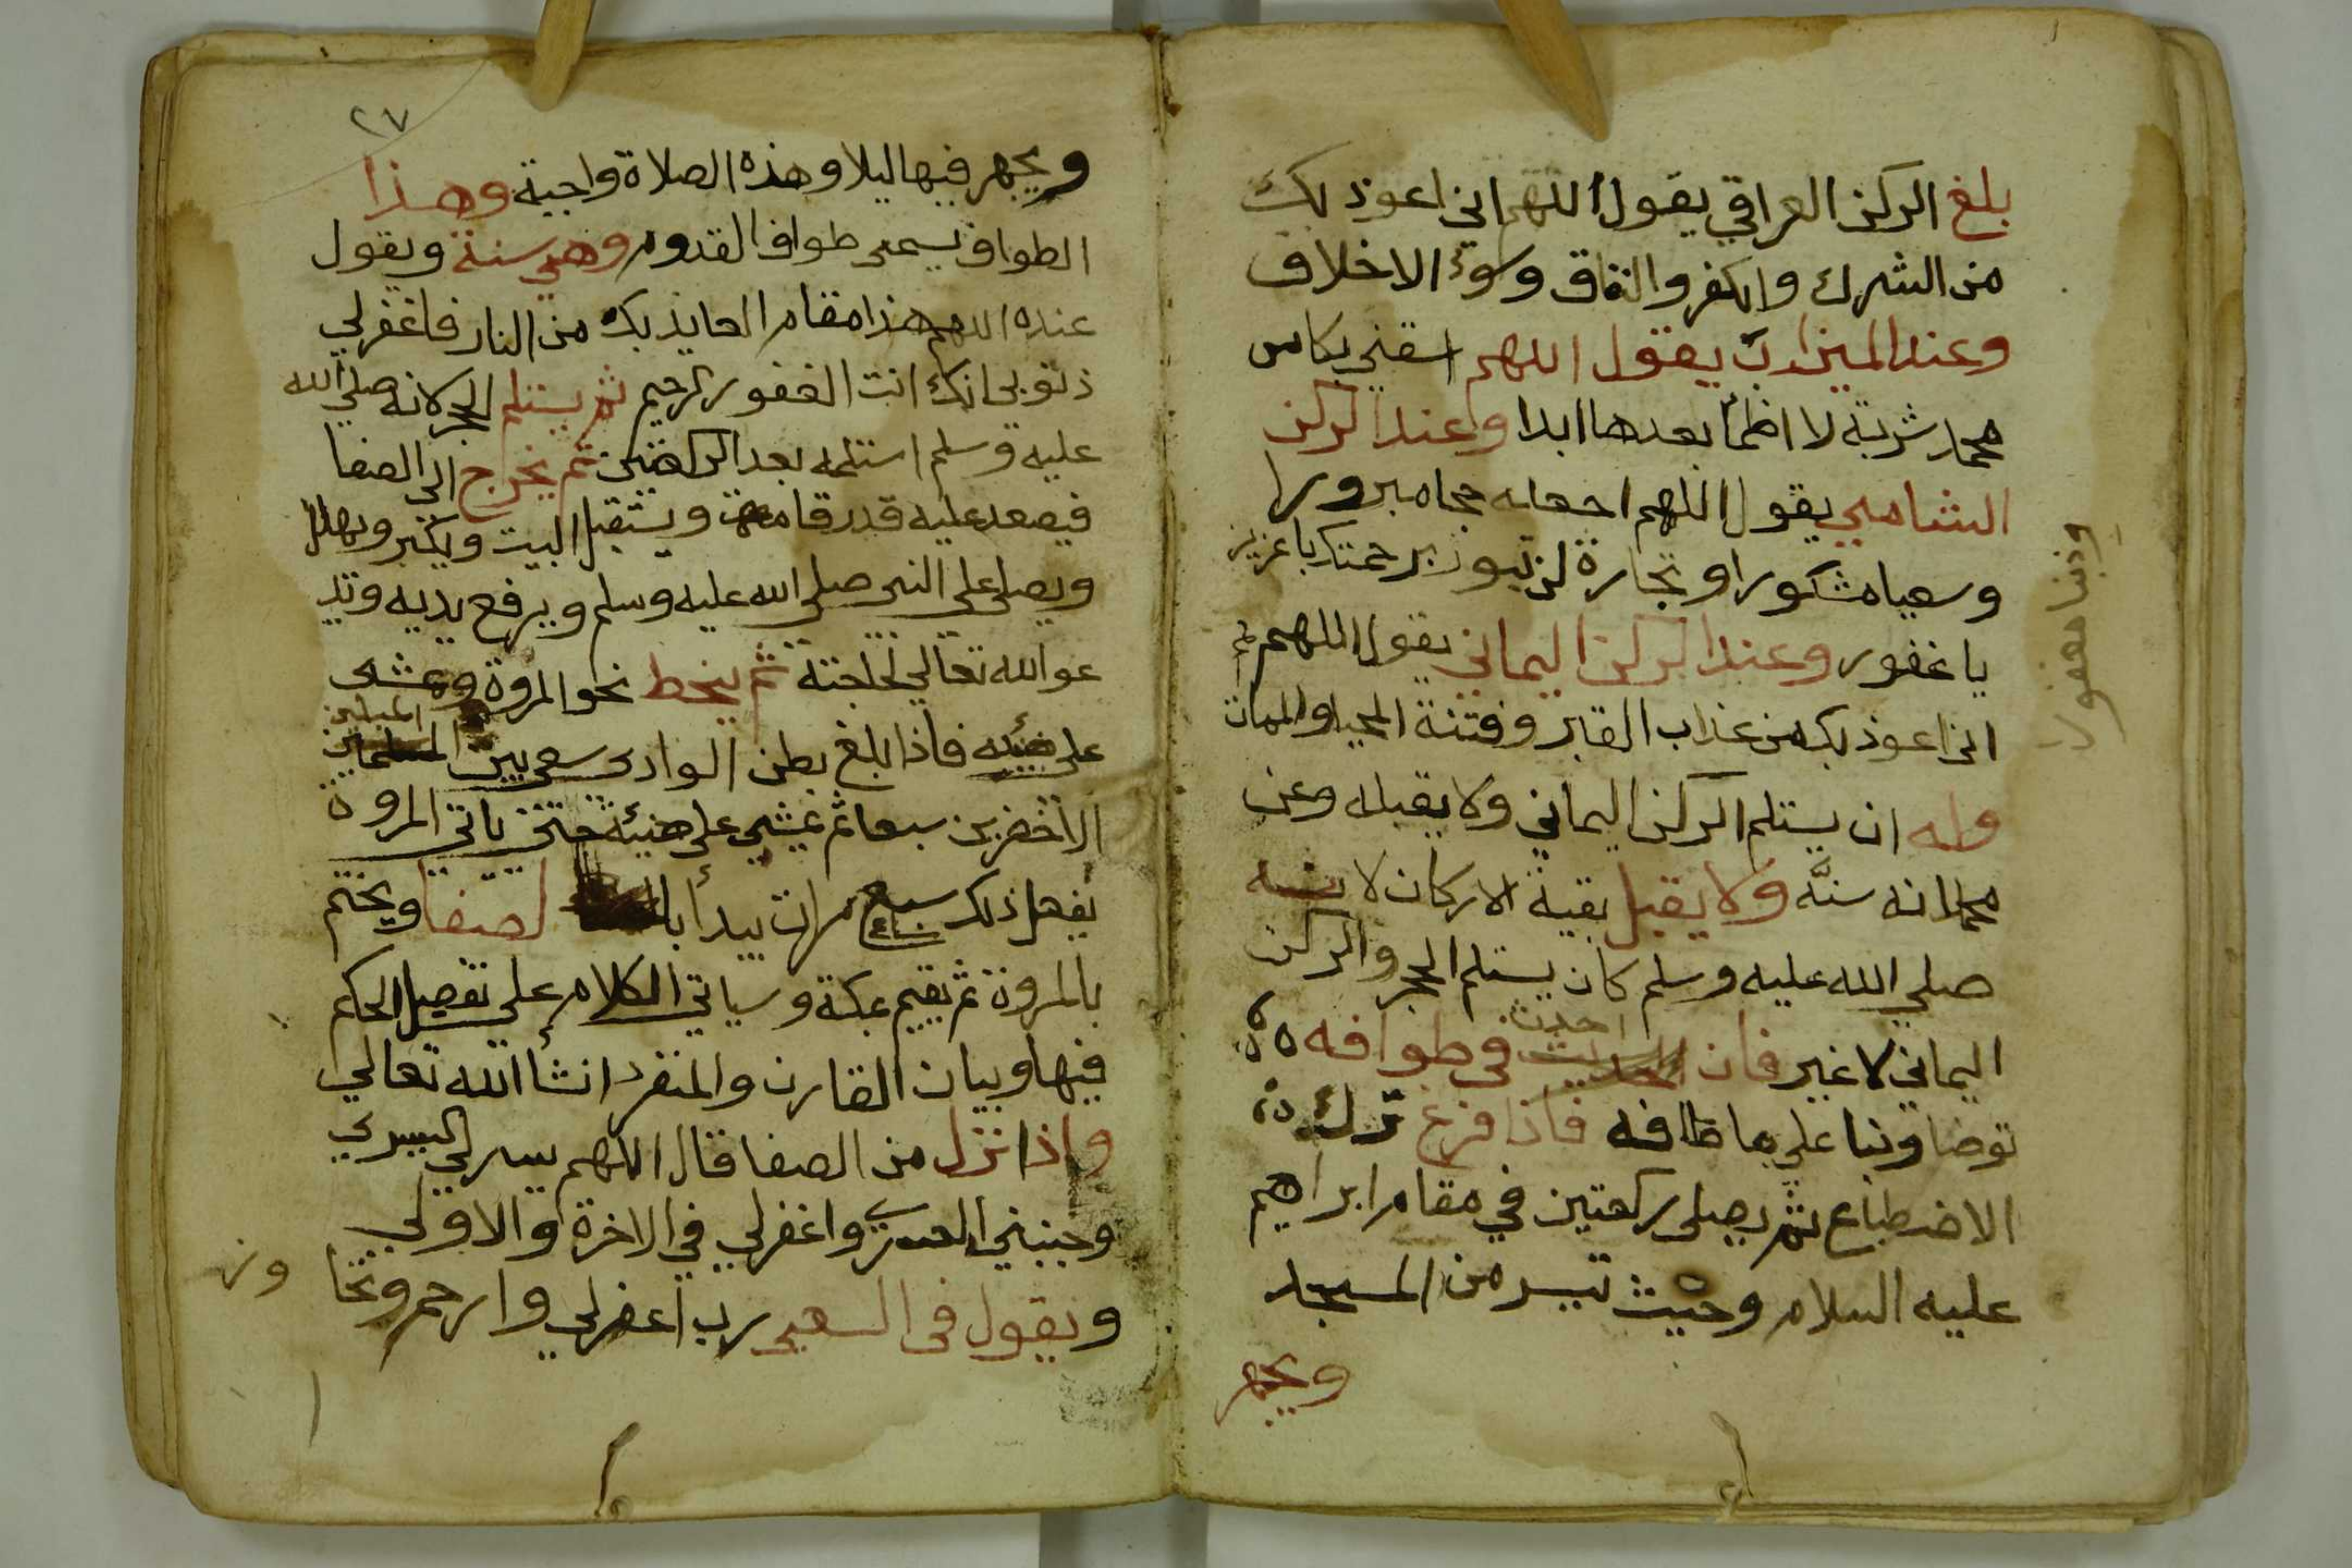 بلغ الركن العراقي يقول اللهم اني اعوذ بك
من الشرك والكفر والنفاق وسوء الاخلاق
وعند الميزاب يقول اللهم اسقني بكاس
محمد شربة لا اظمأ بعدها ابدا وعند الركن
الشامي يقول اللهم اجعله حجا مبرورا
وسعيا مشكورا وتجارة لن تبور برحمتك يا عزيز
يا غفور وعند الركن اليماني يقول اللهم
اني اعوذ بك من عذاب القبر وفتنة المحيا والممات
وله ان يستلم الركن اليماني ولا يقبله وعن
محمد انه سنّه ولا يقبل بقية الاركان لانه
صلي الله عليه وسلم كان يستلم الحجر والركن
اليماني لا غير فان احدث في طوافه
توضا وبنا علي ما طافه فاذا فرغ ترك
الاضطباع ثم يصلى ركعتين في مقام ابراهيم
عليه السلام وحيث تيسر من المسجد
ويجهر
وذنبا مغفورا
٢٧
ويجهر فيها ليلا وهذه الصلاة واجبة وهذا
الطواف يسمى طواف القدوم وهي سنة ويقول
عنده اللهم هذا مقام العايذ بك من النار فاغفر لي
ذنوبي انك انت الغفور الرحيم ثم يستلم الحجر لانه صلي الله
عليه وسلم استلمه بعد الركعتين ثم يخرج الي الصفا
فيصعد عليه قدر قامة ويستقبل البيت ويكبر ويهلل
ويصلي علي النبي صلي الله عليه وسلم ويرفع يديه ويد
عو الله تعالي لحاجته ثم ينحط نحو المروة ومشى
على هنيئه فاذا بلغ بطن الوادى سعى بين الميلين
الاخضرين سبعا ثم يمشي على هنيئة حتى ياتي المروة
يفعل ذلك سبع مرات يبدأ با لصفا ويختم
بالمروة ثم يقيم بمكة وسياتي الكلام علي تفصيل الحكم
فيها وبيان القارن والمنفرد انشأ الله تعالي
واذا نزل من الصفا قال اللهم يسر لي اليسري
وجنبني العسري واغفر لي في الاخرة والاولي
ويقول فى السعي رب اغفر لي وارحم وتجا
وز